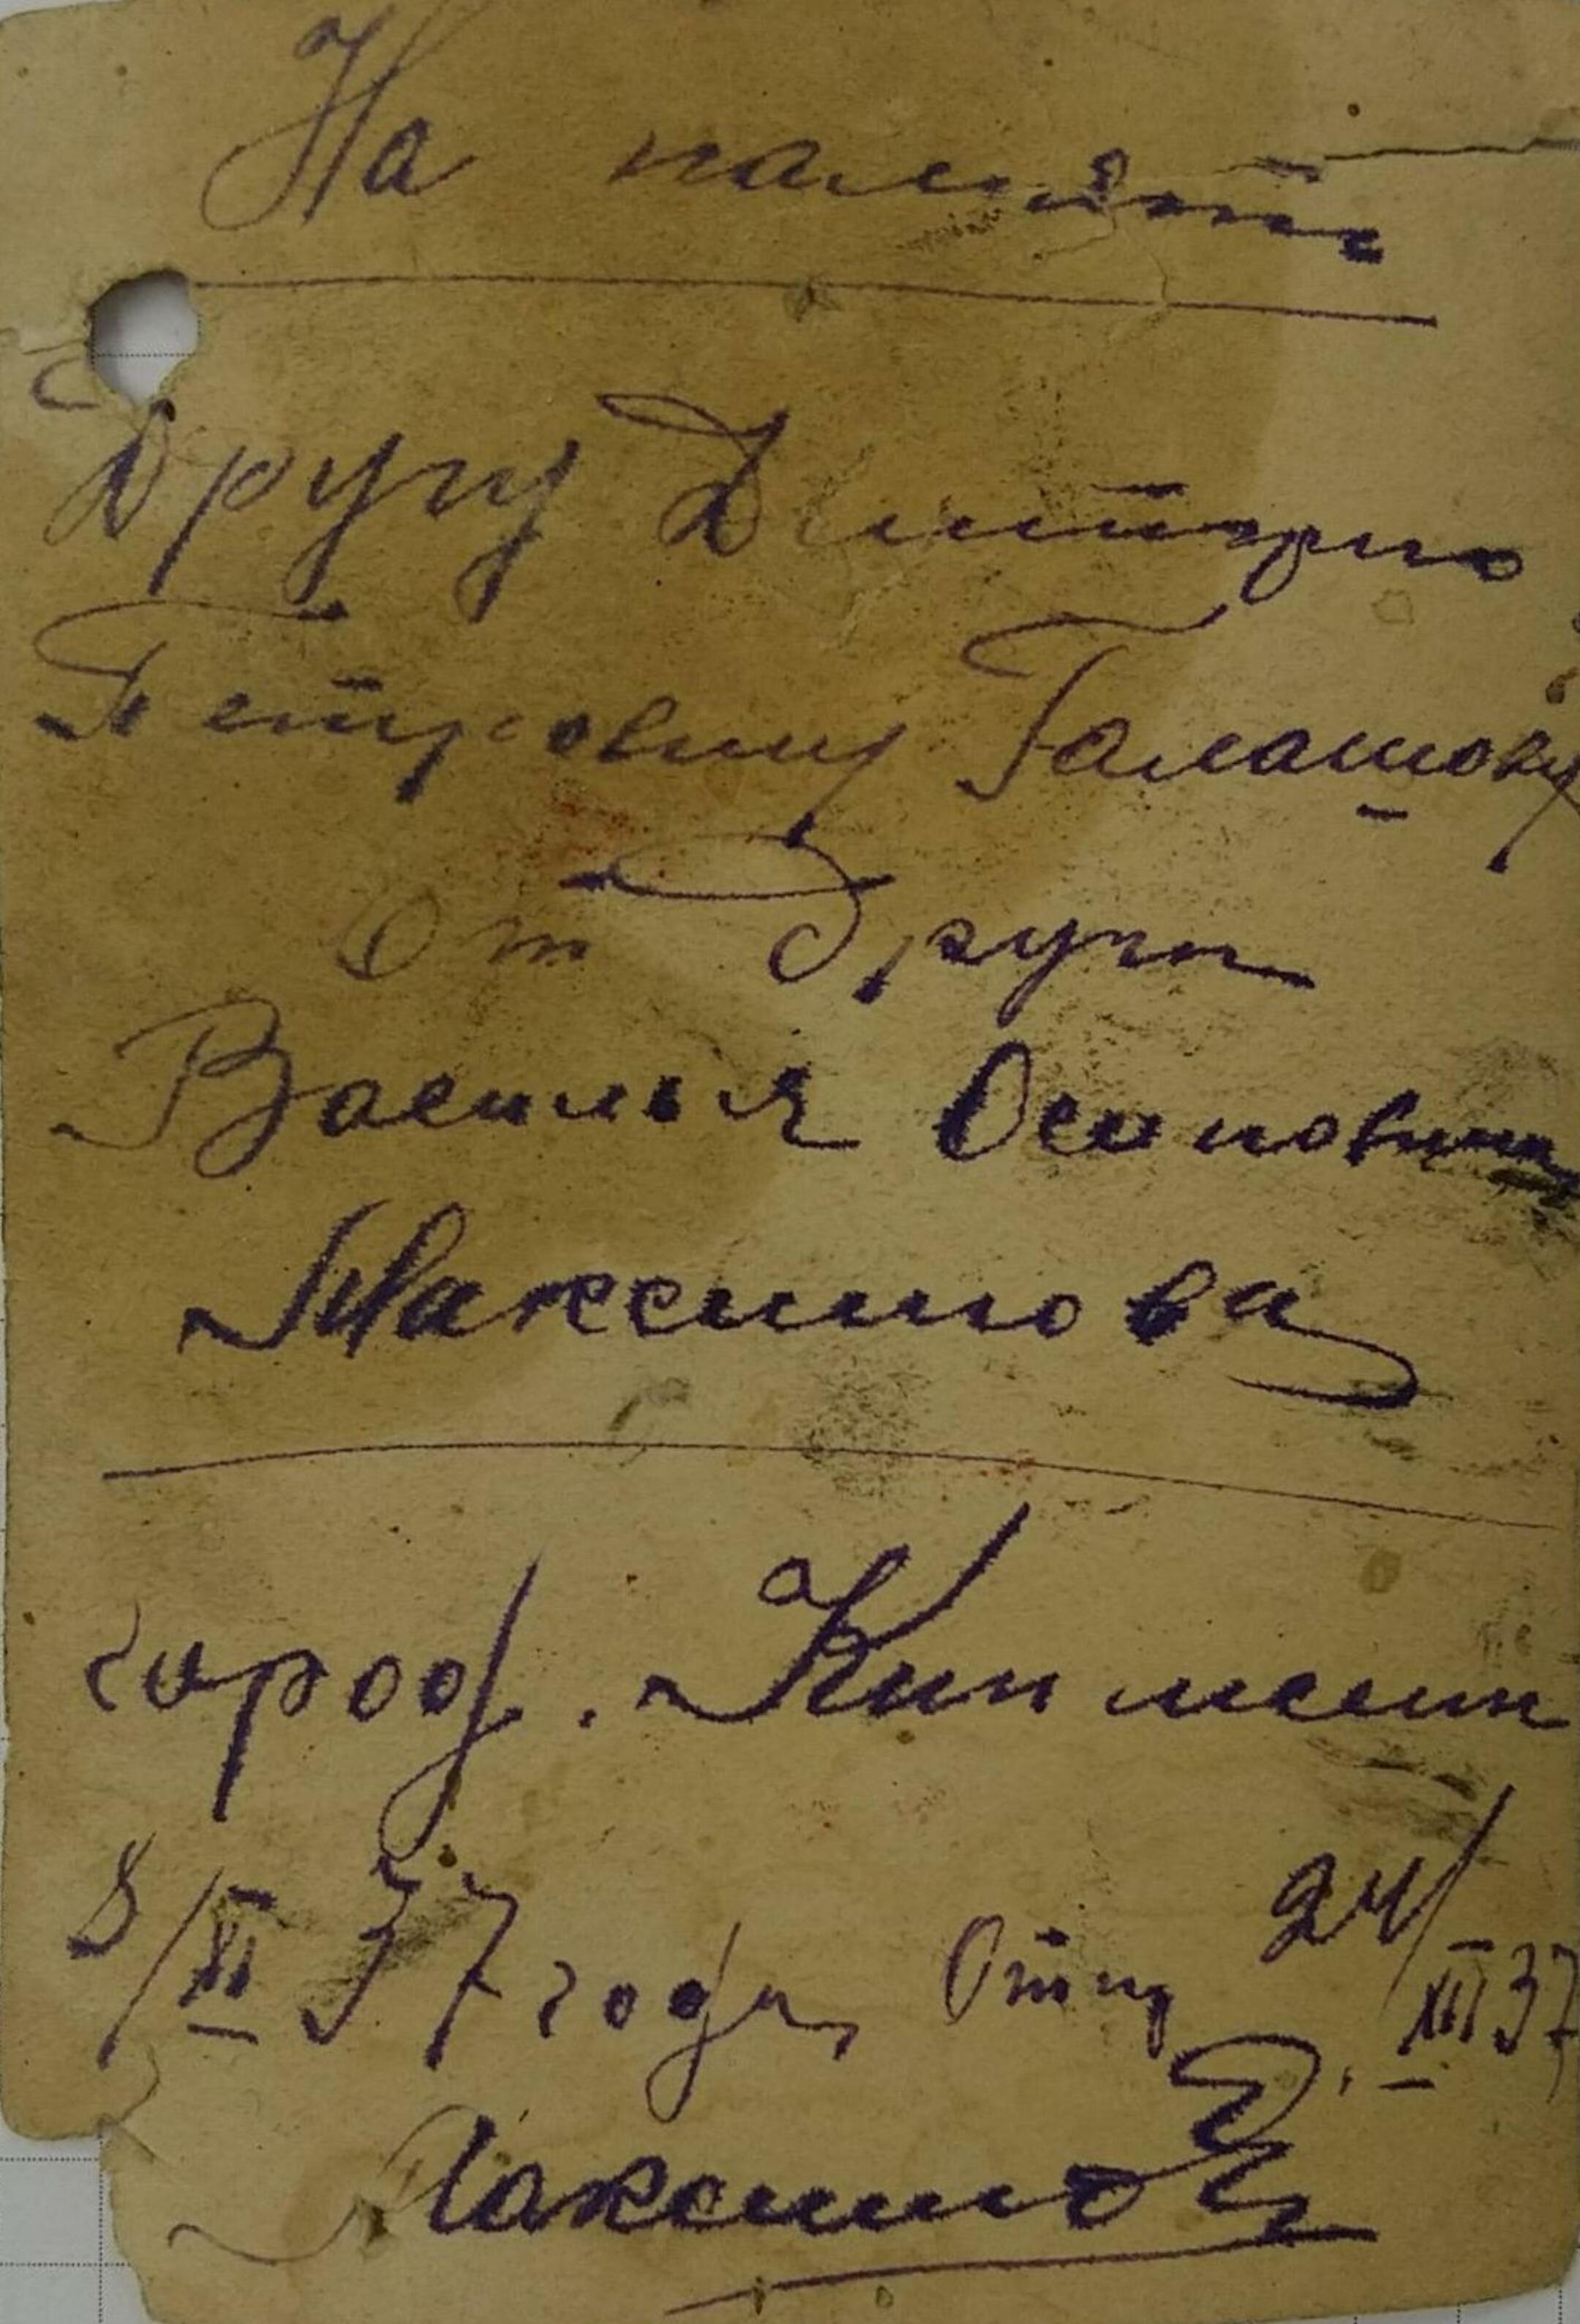 На память
Другу Дмитрию
Петровичу Галашову
От Друга
Василья Осиповича
Максимова
город. Кинмеин
8/XI 37 года, 24/XII 37
Максимов